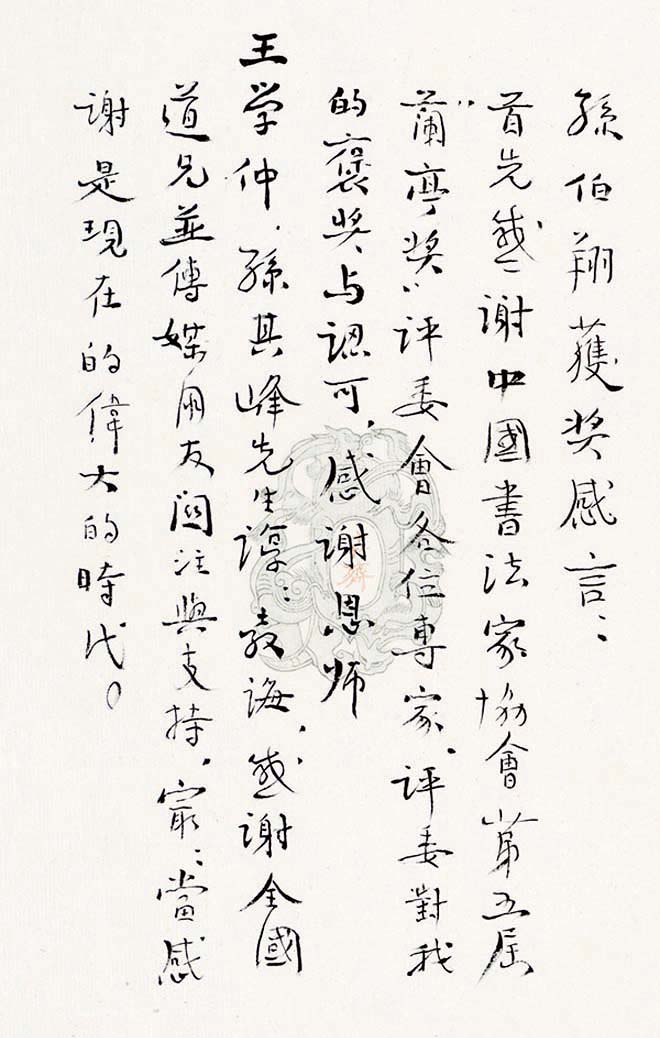 孫伯翔獲奖感言：
首先感謝中國書法家協會第五届
“蘭亭奖”評委會各位專家、評委對我
的褒奖与認可，感謝恩师
王学仲、孫其峰先生諄々教誨，感謝全國
道兄並傳媒朋友關注與支持，最々當感
謝是現在的偉大的時代。